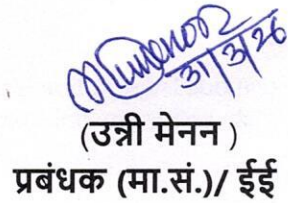 31/3/26
(उन्नी मेनन)
प्रबंधक (मा.सं.)/ ईई